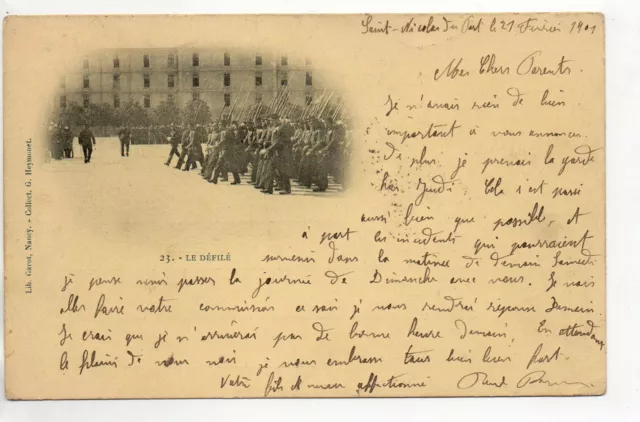 Saint-Nicolas du Port le 21 Février 1901
Mes Chers Parents.
Je n'avais rien de bien
important à vous annoncer.
De plus je prenais la garde
hier Jeudi. Cela s'est passé
aussi bien que possible, et
à part les incidents qui pourraient
survenir dans la matinée de demain Samedi
je pense venir passer la journée de Dimanche avec vous. Je vais
aller faire votre commission ce soir je vous rendrai réponse Demain.
Je crois que je n'arriverai pas de bonne heure demain. En attendant
le plaisir de vous voir je vous embrasse tous bien fort.
Votre fils et affectionné René
23. - LE DÉFILÉ
Lib. Girot, Nancy. - Collect. G. Heymonet.